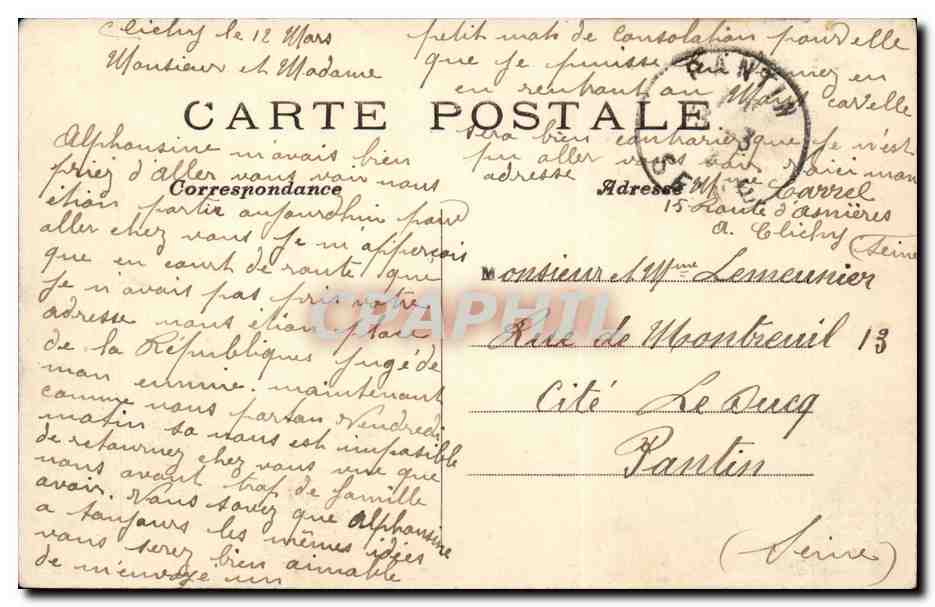 Clichy le 12 Mars
Monsieur et Madame
CARTE POSTALE
Correspondance
Alphonsine m'avais bien
priez d'aller vous voir nous
étion partir aujourdhui pour
aller chez vous je m'apperçois
que en court de route que
je n'avais pas pris votre
adresse nous étion place
de la Républiques jugé de
mon ennuie. maintenant
comme nous parton Vendredi
matin sa nous est impasible
de retournez chez vous vue que
nous avont trop de famille
avoir. Vous savez que alphonsine
a toujours les mêmes idées
vous serez bien aimable
de m'envoyez un
petit mots de consolation pour elle
que je puisse en
en rentrant au
sera bien contrariez que je n'est
pu aller vous voir voici mon
adresse Mme Carrel
15 Route d'Asnières
a. Clichy (Seine
PANTIN
3
SEINE
Adresse
Monsieur et Mme Lemeunier
Rue de Montreuil 13
Cité Le Ducq
Pantin
(Seine)
CPAPHIL